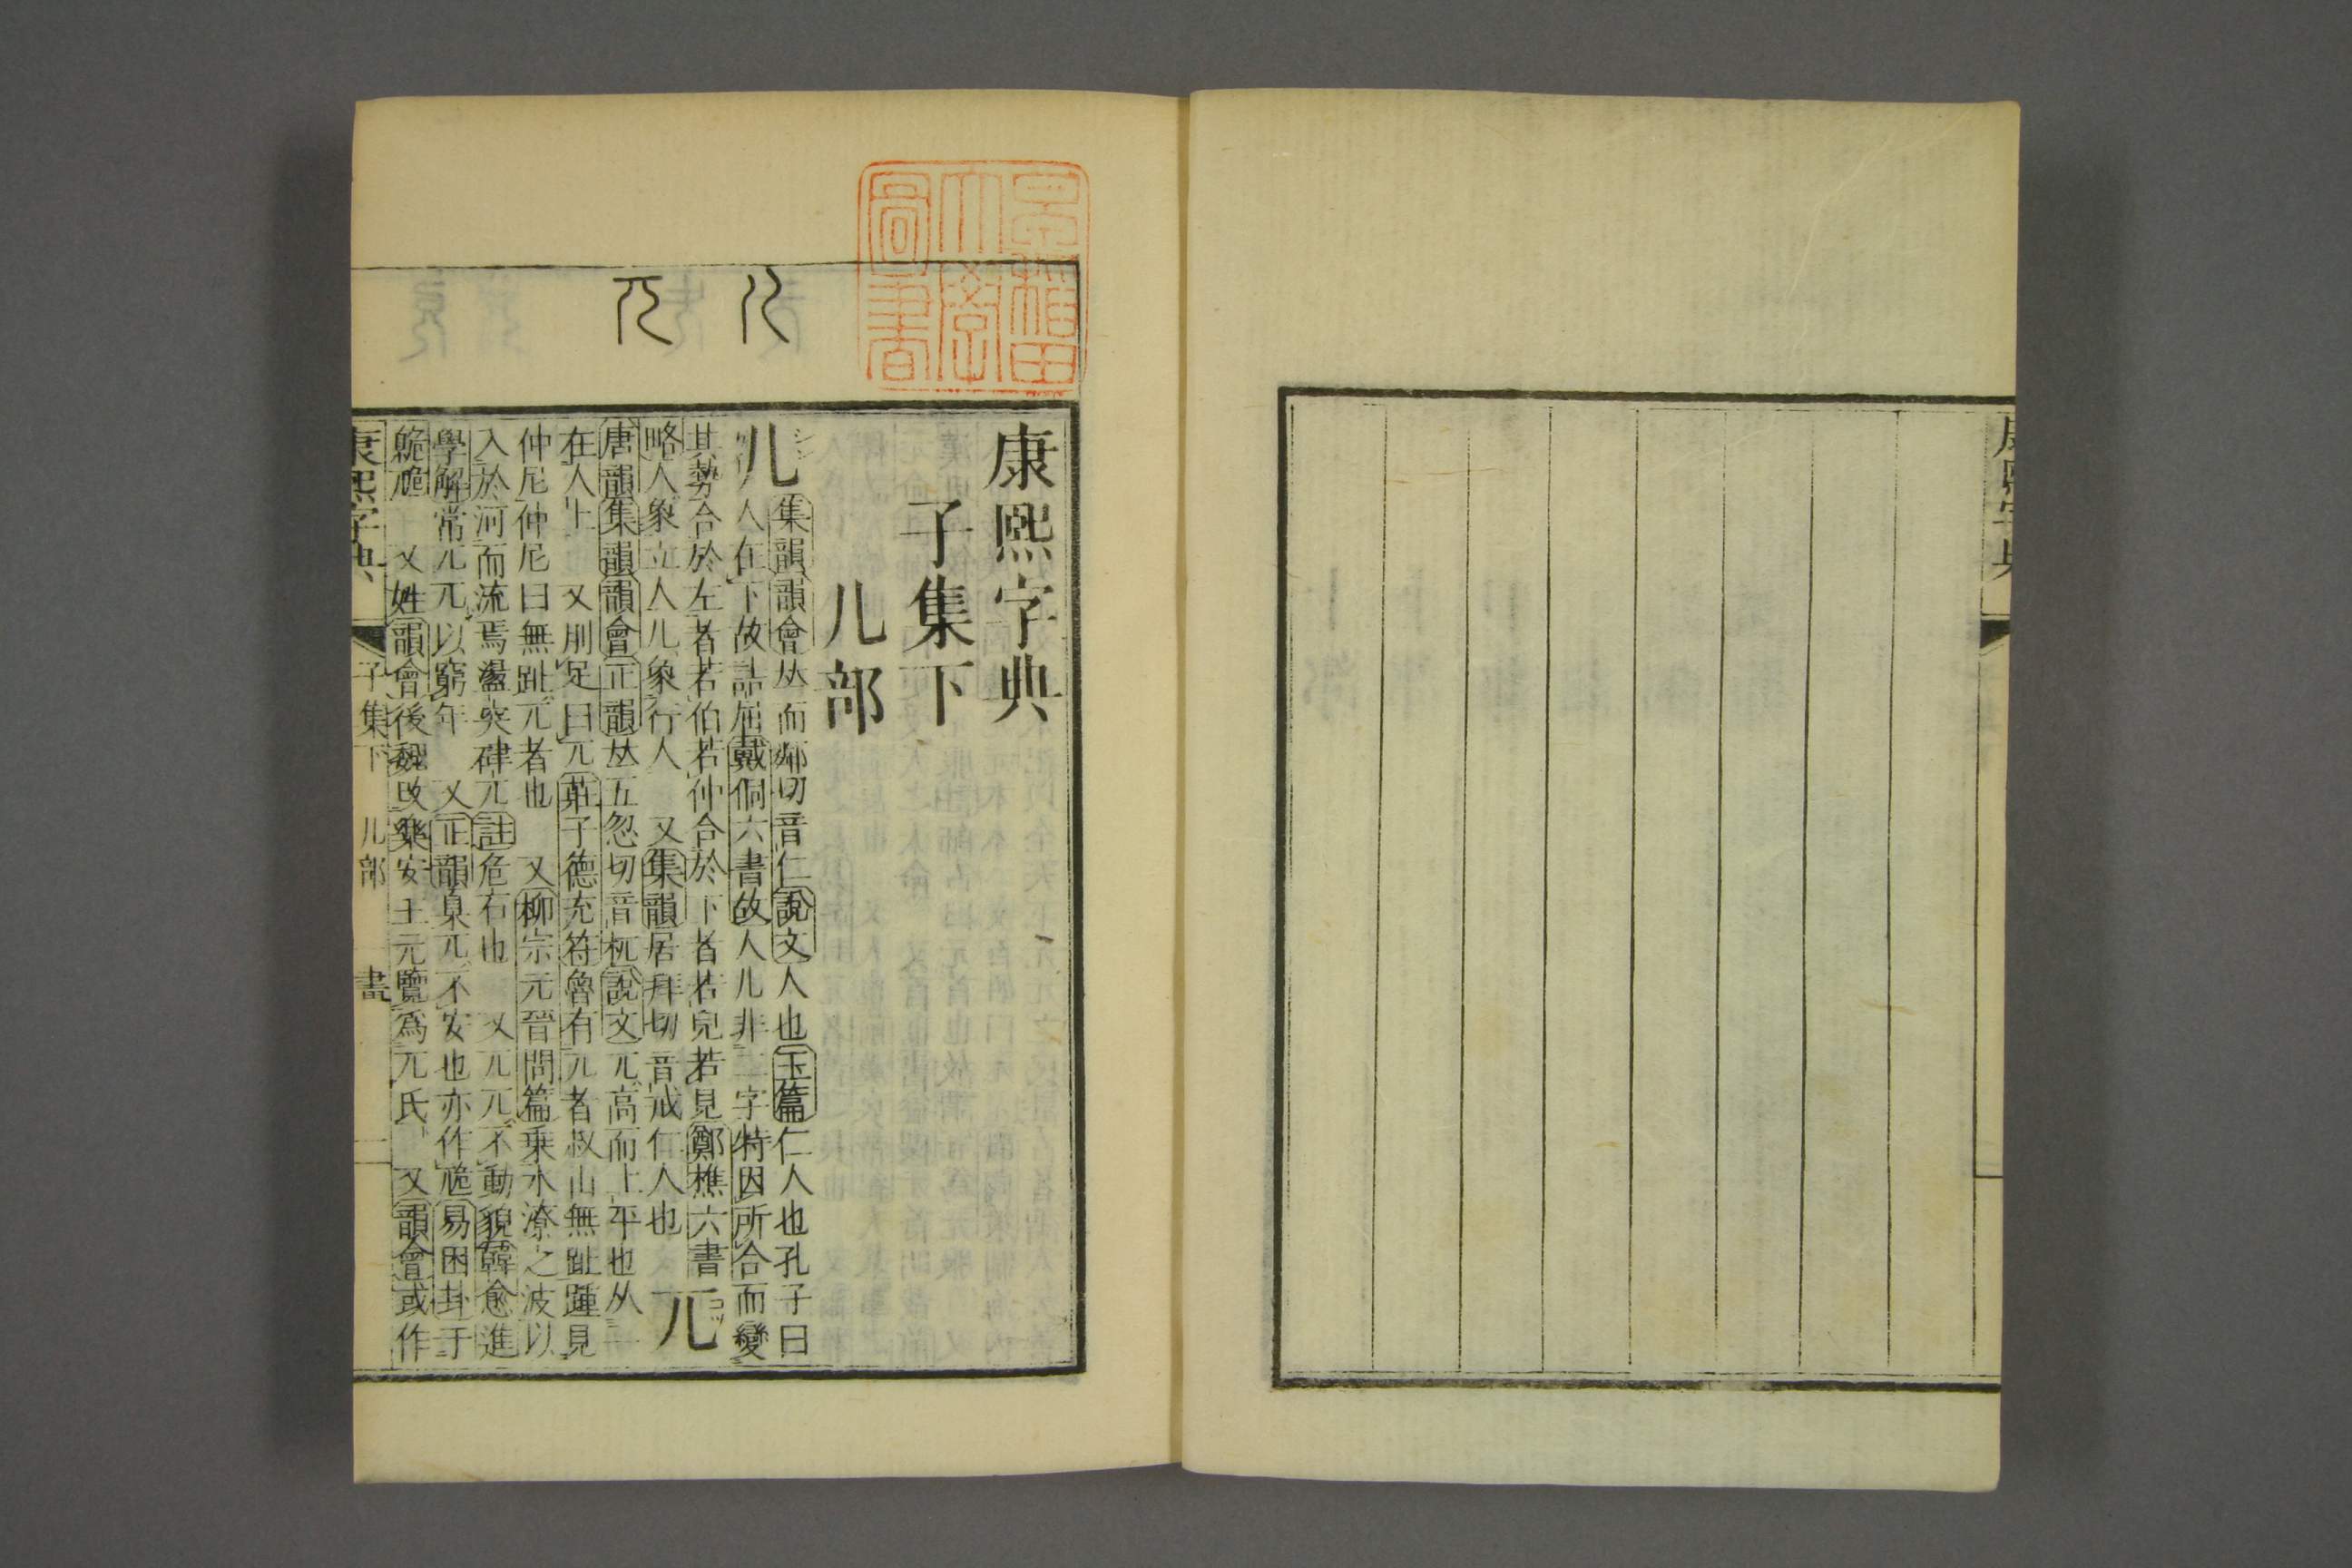 康熙字典
子集下
儿部
儿
シン
集韻韻會𠀤而鄰切音仁說文人也玉篇仁人也孔子曰
人在下故詰屈戴侗六書故人儿非二字特因所合而變
其勢合於左者若伯若仲合於下者若兒若見鄭樵六書
略人象立人儿象行人 又集韻居拜切音戒仁人也
兀
コツ
唐韻集韻韻會正韻𠀤五忽切音杌說文兀高而上平也从一
在人上 又刖足曰兀莊子德充符魯有兀者叔山無趾踵見
仲尼仲尼曰無趾兀者也 又柳宗元晉問篇乗水潦之波以
入於河而流焉盪突硉兀註危石也 又兀兀不動貌韓愈進
學解常兀兀以窮年 又正韻臬兀不安也亦作卼易困卦于
臲卼 又姓韻會後魏改樂安王元覽爲兀氏 又韻會或作
康熙字典 子集下 儿部 畫 一
儿
兀
早稲田
大學
圖書
康熙字典